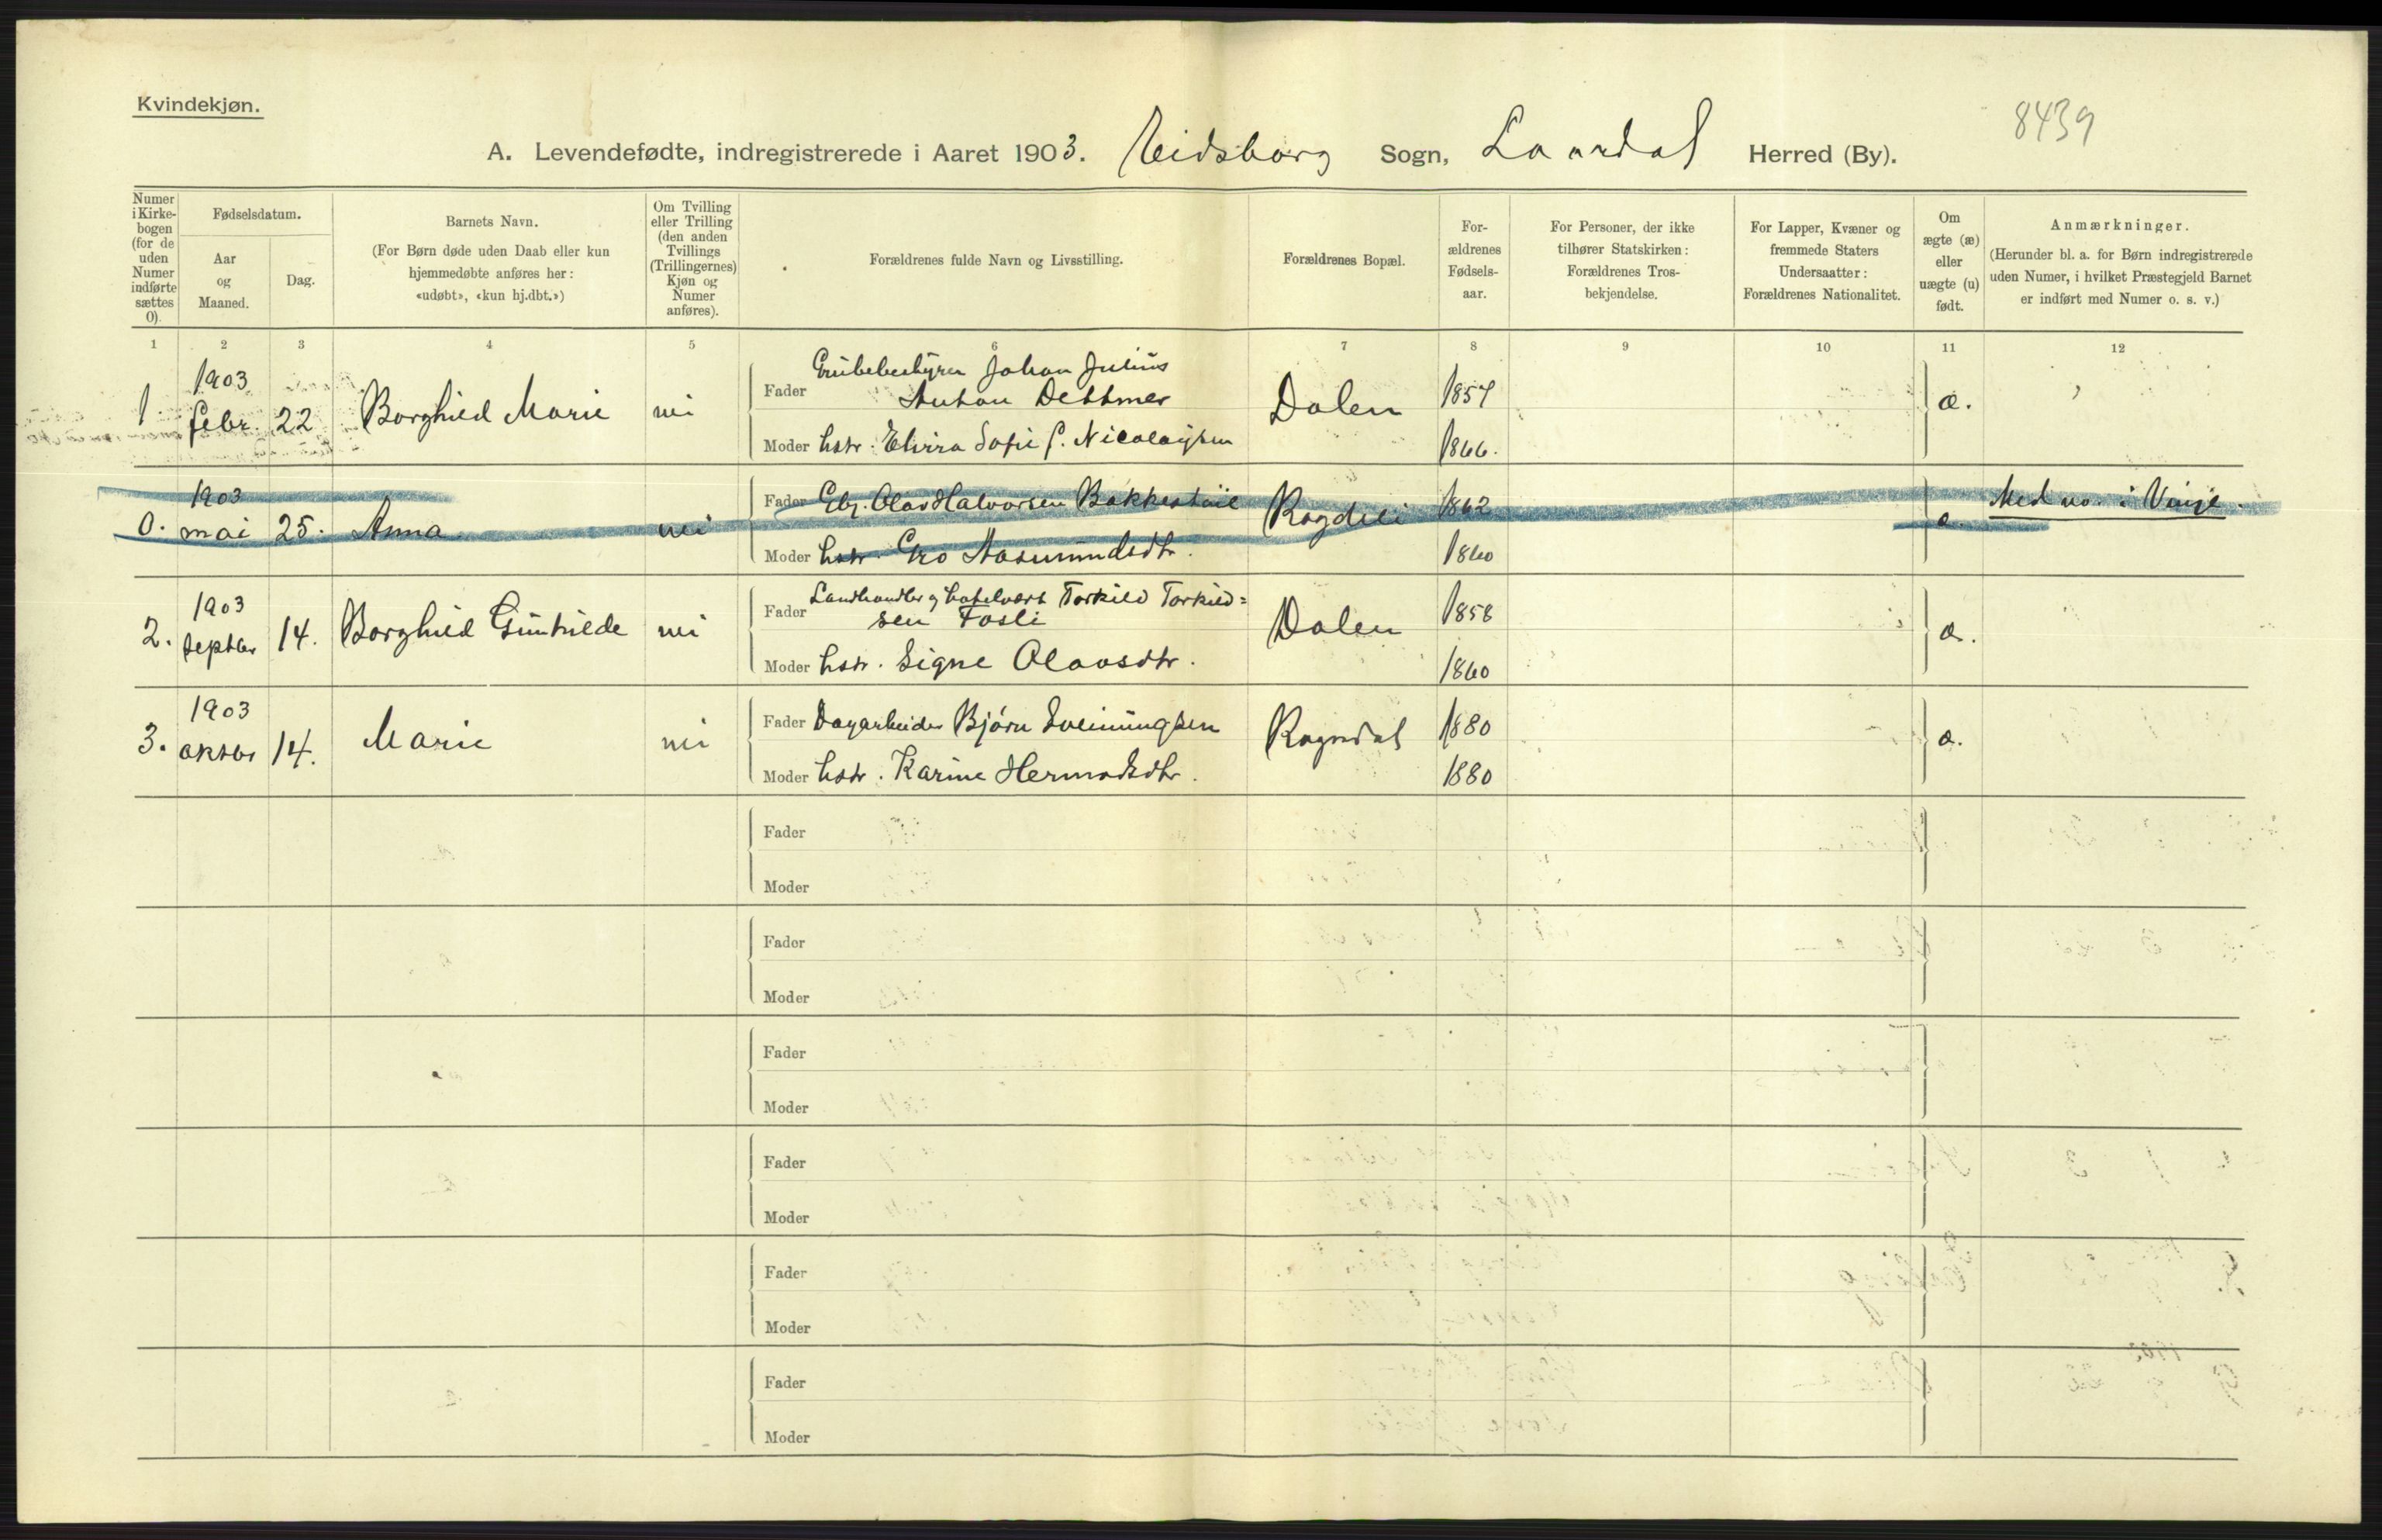 Kvindekjøn.
8439
A. Levendefødte, indregistrerede i Aaret 1903. Eidsborg Sogn, Laardal Herred (By).
Numer i Kirkebogen (for de uden Numer indførte sættes 0).
Fødselsdatum.
Aar og Maaned.
Dag.
Barnets Navn.
(For Børn døde uden Daab eller kun hjemmedøbte anføres her: «udøbt», «kun hj.dbt.»)
Om Tvilling eller Trilling (den anden Tvillings (Trillingernes) Kjøn og Numer anføres).
Forældrenes fulde Navn og Livsstilling.
Forældrenes Bopæl.
Forældrenes Fødselsaar.
For Personer, der ikke tilhører Statskirken: Forældrenes Trosbekjendelse.
For Lapper, Kvæner og fremmede Staters Undersaatter: Forældrenes Nationalitet.
Om ægte (æ) eller uægte (u) født.
Anmærkninger.
(Herunder bl. a. for Børn indregistrerede uden Numer, i hvilket Præstegjeld Barnet er indført med Numer o. s. v.)
1 2 3 4 5 6 7 8 9 10 11 12
1 1903 febr. 22 Borghild Marie nei Fader Grubebestyrer Johan Julius
Anton Dettmer Dalen 1857 æ.
Moder hstr. Elvira Sofie f. Nicolaysen 1866.
0. 1903 mai 25. Anna nei Fader Olav Halvorsen Bakkestøil 1862 æ. Med no. i Vinje.
Moder hstr. Gro Aasmundsdtr. 1860
2. 1903 septbr 14. Borghild Gunhilde nei Fader Landhandler og hotelvært Torkild Torkild=
sen Fosli Dalen 1858 æ.
Moder hstr. Signe Olavsdtr. 1860
3. 1903 oktbr 14. Marie nei Fader Dagarbeider Bjørn Sveinungsen Rogndal 1880 æ.
Moder hstr. Karine Hermodsdtr. 1880
Fader
Moder
Fader
Moder
Fader
Moder
Fader
Moder
Fader
Moder
Fader
Moder